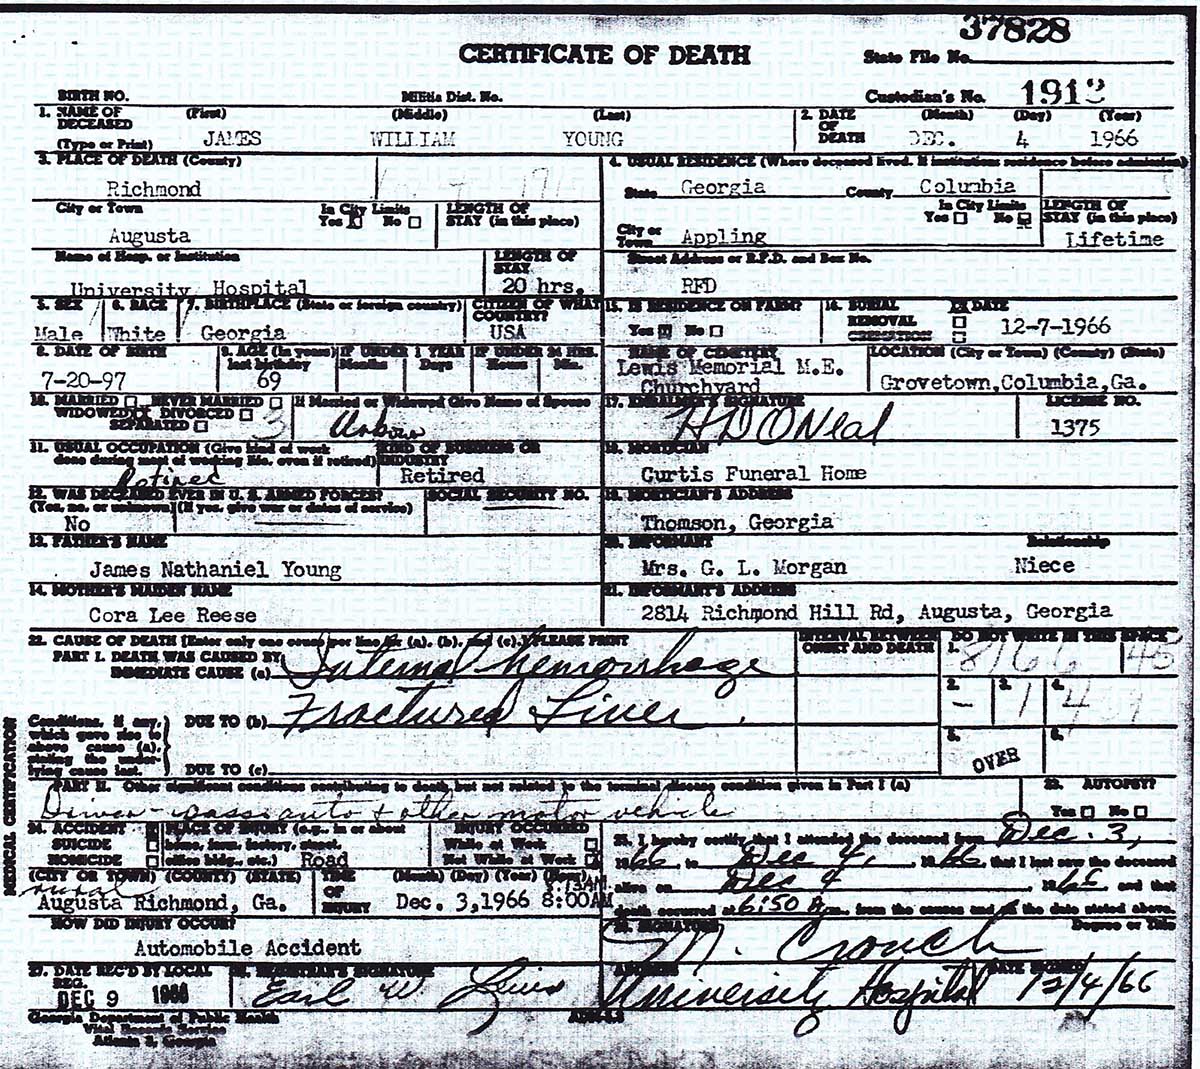 37828
CERTIFICATE OF DEATH
State File No.
BIRTH NO.
Militia Dist. No.
Custodian's No. 1913
1. NAME OF DECEASED (First) (Middle) (Last)
(Type or Print) JAMES WILLIAM YOUNG
2. DATE OF DEATH (Month) (Day) (Year)
DEC. 4 1966
3. PLACE OF DEATH (County)
Richmond
City or Town
Augusta
In City Limits
Yes No
LENGTH OF STAY (in this place)
Name of Hosp. or Institution
University Hospital
LENGTH OF STAY
20 hrs.
4. USUAL RESIDENCE (Where deceased lived. If institutions residence before admission)
State Georgia County Columbia
City or Town Appling
In City Limits
Yes No
LENGTH OF STAY (in this place)
Lifetime
Street Address or R.F.D. and Box No.
RFD
5. SEX
Male
6. RACE
White
7. BIRTHPLACE (State or foreign country)
Georgia
CITIZEN OF WHAT COUNTRY?
USA
8. DATE OF BIRTH
7-20-97
9. AGE (In years last birthday)
69
IF UNDER 1 YEAR
Months Days
IF UNDER 24 HRS.
Hours Min.
10. MARRIED NEVER MARRIED
WIDOWED XX DIVORCED
SEPARATED
3
If Married or Widowed Give Name of Spouse
11. USUAL OCCUPATION (Give kind of work done during most of working life, even if retired)
Retired
KIND OF BUSINESS OR INDUSTRY
Retired
12. WAS DECEASED EVER IN U. S. ARMED FORCES?
(Yes, no, or unknown) (If yes, give war or dates of service)
No
SOCIAL SECURITY NO.
13. FATHER'S NAME
James Nathaniel Young
14. MOTHER'S MAIDEN NAME
Cora Lee Reese
15. IS RESIDENCE ON FARM?
Yes No
16. BURIAL XX
REMOVAL
CREMATION
DATE
12-7-1966
NAME OF CEMETERY
Lewis Memorial M.E.
Churchyard
LOCATION (City or Town) (County) (State)
Grovetown,Columbia,Ga.
17. EMBALMER'S SIGNATURE
H D O'Neal
LICENSE NO.
1375
18. MORTICIAN
Curtis Funeral Home
19. MORTICIAN'S ADDRESS
Thomson, Georgia
20. INFORMANT Relationship
Mrs. G. L. Morgan Niece
21. INFORMANT'S ADDRESS
2814 Richmond Hill Rd, Augusta, Georgia
22. CAUSE OF DEATH [Enter only one cause per line for (a), (b), and (c).] PLEASE PRINT
PART I. DEATH WAS CAUSED BY
IMMEDIATE CAUSE (a) Internal hemorrhage
DUE TO (b) Fractured Liver
DUE TO (c)
Conditions, if any, which gave rise to above cause (a), stating the underlying cause last.
INTERVAL BETWEEN ONSET AND DEATH
DO NOT WRITE IN THIS SPACE
1. 8166 45
2. - 3. 1 4. 4
5. OVER 6.
MEDICAL CERTIFICATION
PART II. Other significant conditions contributing to death, but not related to the terminal disease condition given in Part I (a)
Driver - pass. auto & other motor vehicle
23. AUTOPSY?
Yes No
24. ACCIDENT
SUICIDE
HOMICIDE
PLACE OF INJURY (e.g., in or about home, farm, factory, street, office bldg., etc.) Road
INJURY OCCURRED
While at Work
Not While at Work
(CITY OR TOWN) (COUNTY) (STATE)
rural
Augusta Richmond, Ga.
TIME OF INJURY (Month) (Day) (Year) (Hour)
Dec. 3,1966 8:00AM
HOW DID INJURY OCCUR?
Automobile Accident
25. I hereby certify that I attended the deceased from Dec. 3,
1966 to Dec 4, 1966, that I last saw the deceased
alive on Dec 4 1966 and that
death occurred at 6:50 A.m., from the causes and on the date stated above.
26. SIGNATURE Degree or Title
M. Crouch
ADDRESS DATE SIGNED
University Hospital 12/4/66
27. DATE REC'D BY LOCAL REG.
DEC 9 1966
28. REGISTRAR'S SIGNATURE
Earl W. Lewis
Georgia Department of Public Health
Vital Records Service
Atlanta 3, Georgia